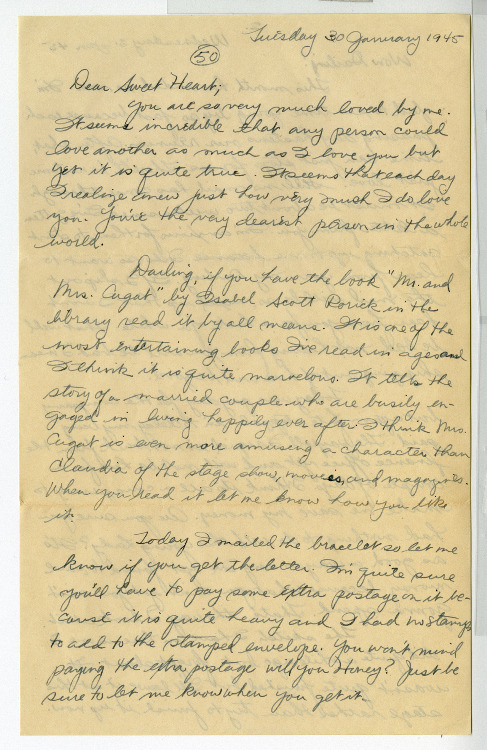 Tuesday 30 January 1945
50
Dear Sweet Heart;
You are so very much loved by me.
It seems incredible that any person could
love another as much as I love you but
yet it is quite true. It seems that each day
I realize anew just how very much I do love
you. You're the very dearest person in the whole
world.
Darling, if you have the book "Mr. and
Mrs. Cugat" by Isabel Scott Rorick in the
library read it by all means. It is one of the
most entertaining books I've read in ages and
I think it is quite marvelous. It tells the
story of a married couple who are busily en-
gaged in living happily ever after. I think Mrs.
Cugat is even more amusing a character than
Claudia of the stage show, movies, and magazines.
When you read it let me know how you like
it.
Today I mailed the bracelet so let me
know if you get the letter. I'm quite sure
you'll have to pay some extra postage on it be-
cause it is quite heavy and I had no stamps
to add to the stamped envelope. You won't mind
paying the extra postage will you Honey? Just be
sure to let me know when you get it.